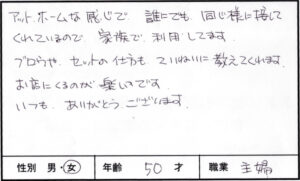 アットホームな感じで、誰にでも同じ様に接して
くれているので、家族で利用してます。
ブロウや、セットの仕方もていねいに教えてくれます。
お店にくるのが楽しいです
いつも、ありがとうございます。
性別 男・女 年齢 50 才 職業 主婦